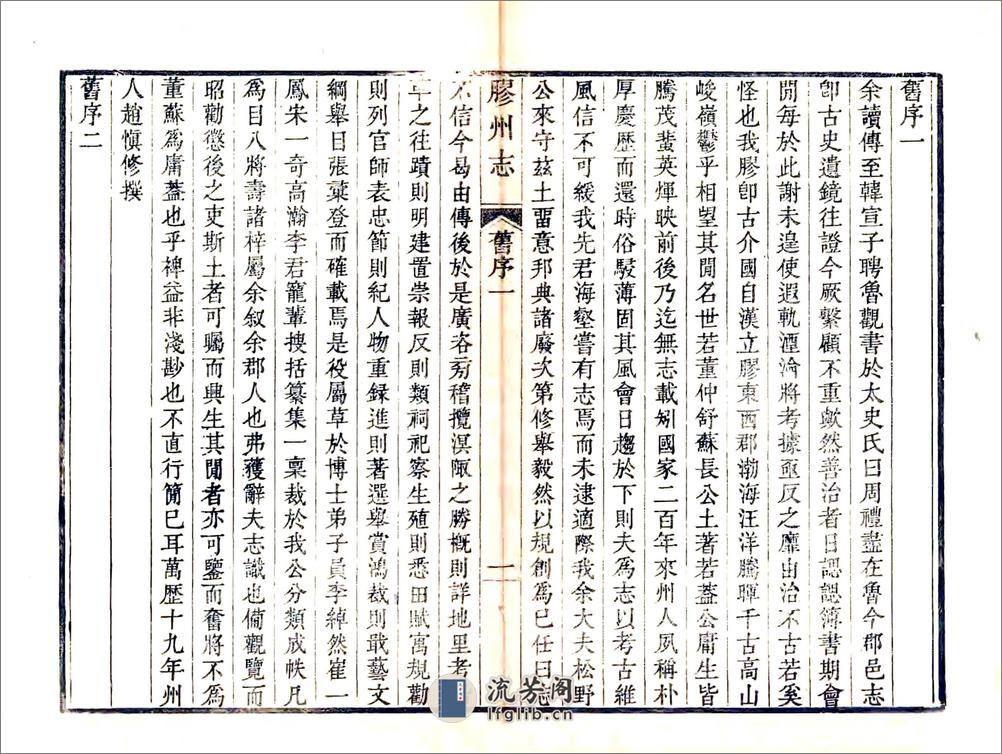 舊序一
余讀傳至韓宣子聘魯觀書於太史氏曰周禮盡在魯今郡邑志
卽古史遺鏡往證今厥繫顧不重歟然善治者日諰諰簿書期會
閒每於此謝未遑使遐軌湮淪將考據亟反之靡由治不古若奚
怪也我膠卽古介國自漢立膠東西郡渤海汪洋騰暉千古高山
峻嶺鬱乎相望其閒名世若董仲舒蘇長公土著若葢公庸生皆
騰茂蜚英煇映前後乃迄無志載矧國家二百年來州人夙稱朴
厚慶歷而還時俗駸薄固其風會日趨於下則夫爲志以考古維
風信不可緩我先君海壑嘗有志焉而未逮適際我余大夫松野
公來守茲土畱意邦典諸廢次第修舉毅然以規創爲已任曰志
膠州志
舊序一
一
不信今曷由傳後於是廣咨旁稽攬溟陬之勝槪則詳地里考
之往蹟則明建置崇報反則類祠祀察生殖則悉田賦寓規勸
則列官師表忠節則紀人物重録進則著選舉賞鴻裁則最藝文
綱舉目張彙登而確載焉是役屬草於博士弟子員李綽然崔一
鳳宋一奇高瀚李君寵輩搜括纂集一稟裁於我公分類成帙凡
爲目八將壽諸梓屬余叙余郡人也弗獲辭夫志識也僃觀覽而
昭勸懲後之吏斯土者可矚而興生其閒者亦可鑒而奮將不爲
董蘇爲庸葢也乎裨益非淺尠也不直行簡已耳萬歷十九年州
人趙愼修撰
舊序二
流芳阁
lfglib.cn